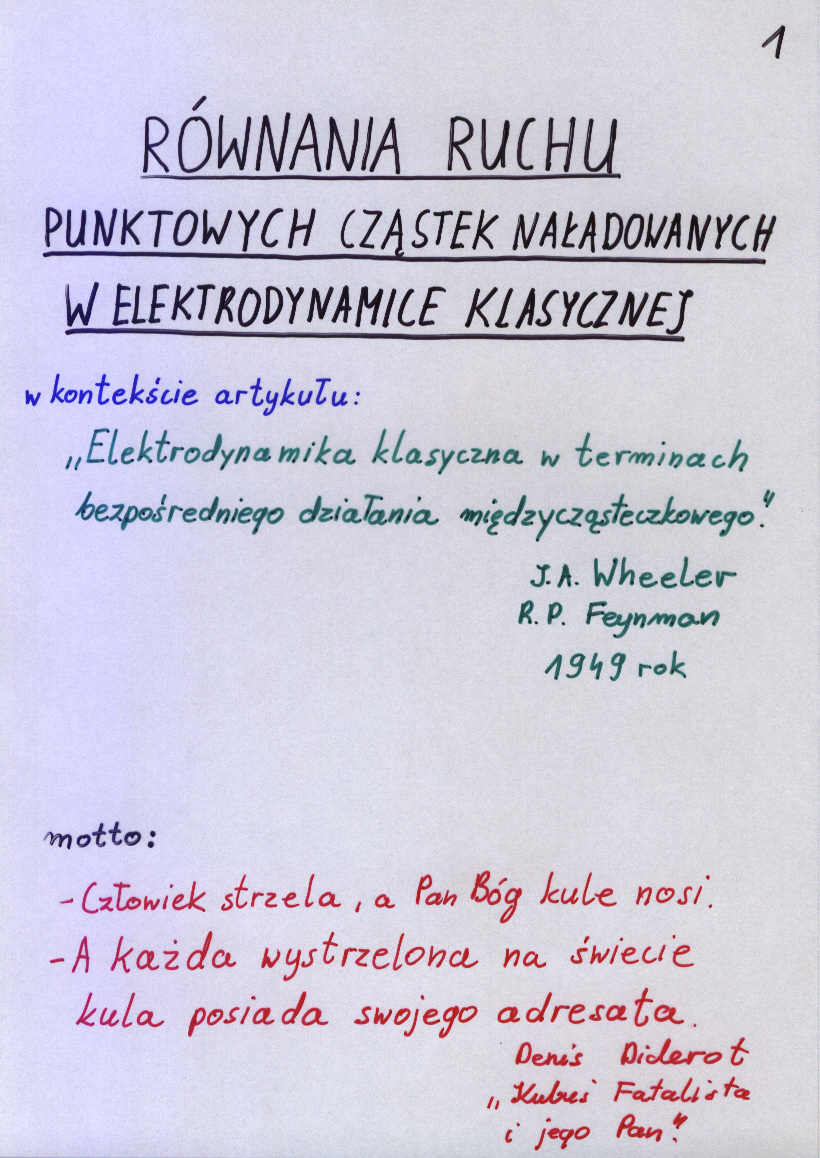 1
RÓWNANIA RUCHU
PUNKTOWYCH CZĄSTEK NAŁADOWANYCH
W ELEKTRODYNAMICE KLASYCZNEJ
w kontekście artykułu:
„Elektrodynamika klasyczna w terminach
bezpośredniego działania międzycząsteczkowego."
J.A. Wheeler
R.P. Feynman
1949 rok
motto:
- Człowiek strzela, a Pan Bóg kule nosi.
- A każda wystrzelona na świecie
kula posiada swojego adresata.
Denis Diderot
„Kubuś Fatalista
i jego Pan".